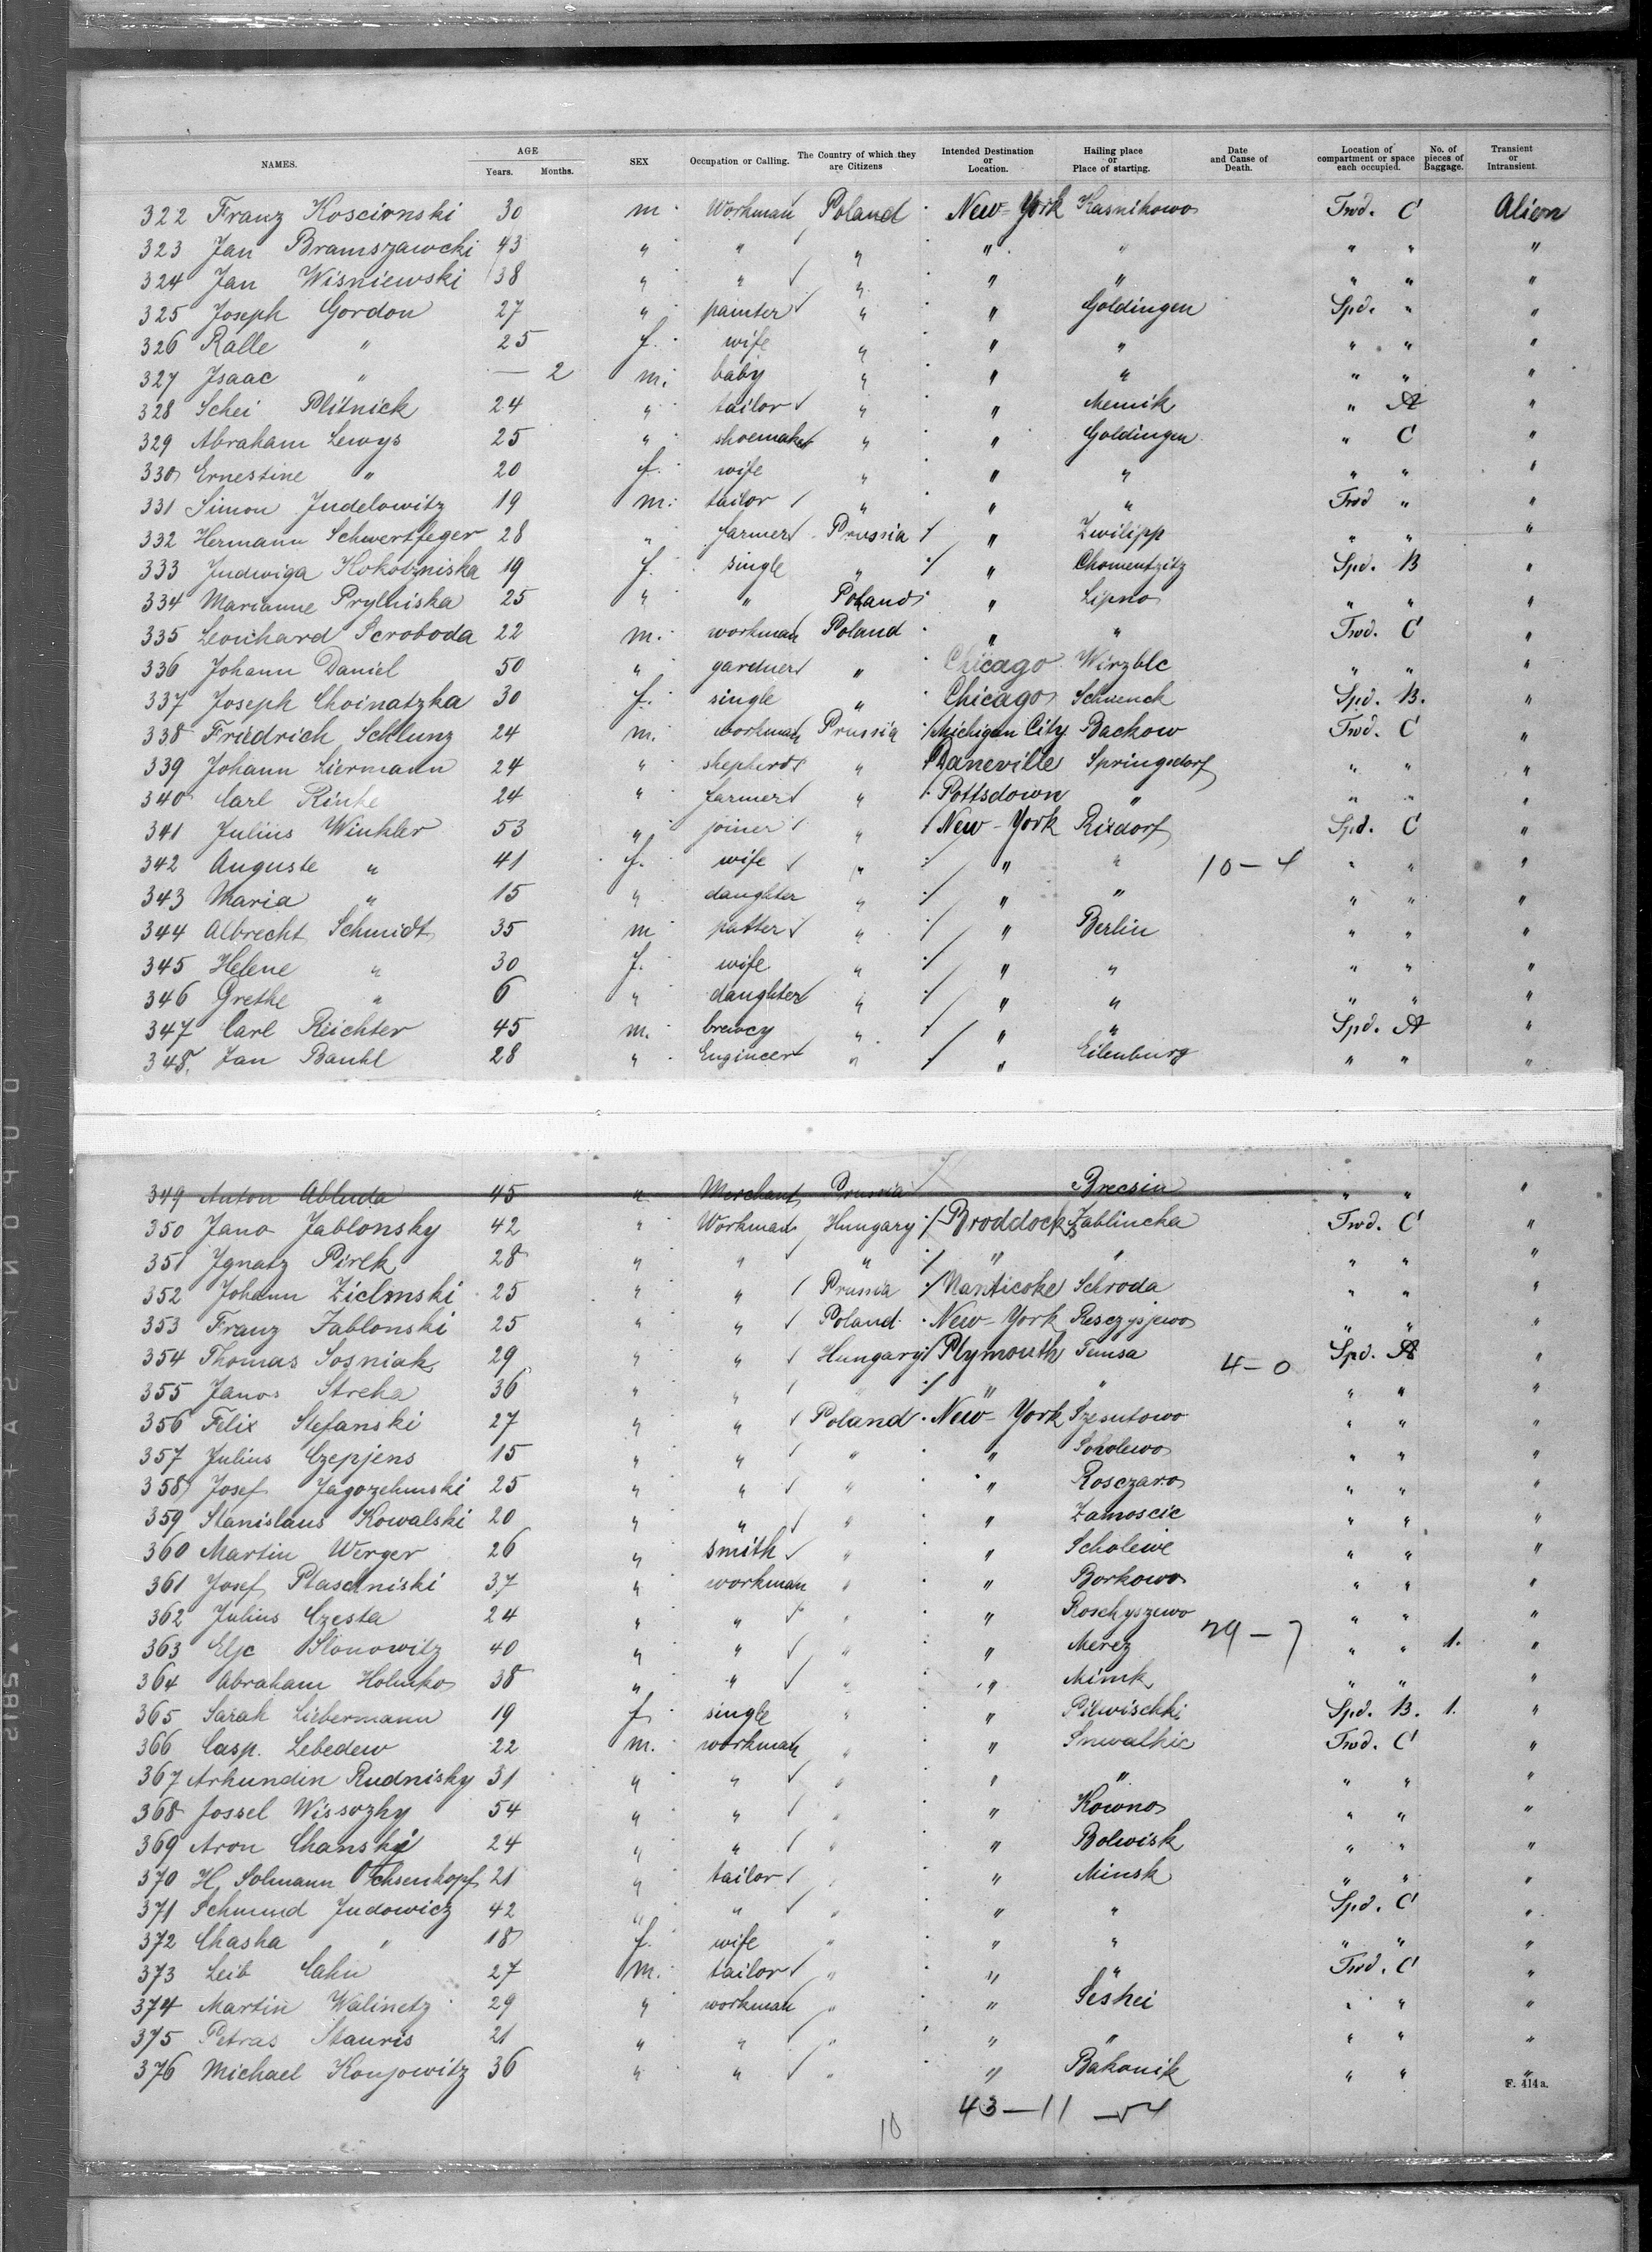 NAMES. AGE Years. Months. SEX Occupation or Calling. The Country of which they are Citizens Intended Destination or Location. Hailing place or Place of starting. Date and Cause of Death. Location of compartment or space each occupied. No. of pieces of Baggage. Transient or Intransient.
322 Franz Koscionski 30 m. Workman Poland New-York Kasnikowo Fwd. C Alien
323 Jan Bramszawcki 43 " " " " " " " "
324 Jan Wisniewski 38 " " " " " " " "
325 Joseph Gordon 27 " painter " " Goldingen Spd. " "
326 Ralle " 25 f. wife " " " " " "
327 Isaac " — 2 m. baby " " " " " "
328 Schei Plitnick 24 " tailor " " Memik " A "
329 Abraham Lewys 25 " shoemaker " " Goldingen " C "
330 Ernestine " 20 f. wife " " " " " "
331 Simon Judelowitz 19 m. tailor " " " Fwd " "
332 Hermann Schwertfeger 28 " farmer Prussia " Zwilipp " " "
333 Judwiga Kokotzniska 19 f. single " " Chomentzitz Spd. B "
334 Marianne Prylniska 25 " " Poland " Lipno " " "
335 Leonhard Scroboda 22 m. workman Poland " " Fwd. C "
336 Johann Daniel 50 " gardner " Chicago Wirzble " " "
337 Joseph Choinatzka 30 f. single " Chicago Schwenck Spd. B. "
338 Friedrich Schlunz 24 m. workman Prussia Michigan City Backow Fwd. C "
339 Johann Liermann 24 " shepherd " Daneville Springsdorf " " "
340 Carl Rinke 24 " farmer " Pottsdown " " " "
341 Julius Winkler 53 " joiner " New-York Rixdorf Spd. C "
342 Auguste " 41 f. wife " " " 10-4 " " "
343 Maria " 15 " daughter " " " " " "
344 Albrecht Schmidt 35 m potter " " Berlin " " "
345 Helene " 30 f. wife " " " " " "
346 Grethe " 6 " daughter " " " " " "
347 Carl Reichter 45 m. brewey " " " Spd. A "
348. Jan Bauhl 28 " Engineer " " Eilenburg " " "
349 Anton Abluda 45 " Merchant Prussia Brecsin " " "
350 Jano Jablonsky 42 " Workman Hungary Broddock Zablincka Fwd. C "
351 Ignatz Pirek 28 " " " " " " " "
352 Johann Zielmski 25 " " Prussia Nanticoke Schroda " " "
353 Franz Jablonski 25 " " Poland New-York Resczysjewo " " "
354 Thomas Sosniak 29 " " Hungary Plymouth Temsa 4-0 Spd. A "
355 Janos Streha 36 " " " " " " " "
356 Felix Stefanski 27 " " Poland New-York Szesutowo " " "
357 Julius Czepjens 15 " " " " Sokolewo " " "
358 Josef Jagozelmski 25 " " " " Rosczaro " " "
359 Stanislaus Kowalski 20 " " " " Zamoscie " " "
360 Martin Werger 26 " smith " " Scholewe " " "
361 Josef Plaschniski 37 " workman " " Borkowo " " "
362 Julius Czesta 24 " " " " Roschyszewo " " "
363 Elje Slonowitz 40 " " " " Merez 29-7 " " 1. "
364 Abraham Holmko 38 " " " " Mimk " " "
365 Sarah Liebermann 19 f single " " Pilwischki Spd. B. 1. "
366 Casp. Lebedew 22 m. workman " " Suwalkie Fwd. C "
367 Arkundin Rudnisky 31 " " " " " " " "
368 Jossel Wissozky 54 " " " " Kowno " " "
369 Aron Chansky 24 " " " " Bolwisk " " "
370 H. Solmann Ochsenkopf 21 " tailor " " Minsk " " "
371 Schmund Judowicz 42 " " " " " Spd. C "
372 Chaska " 18 f. wife " " " " " "
373 Leib Cahn 27 m. tailor " " " Fwd. C "
374 Martin Walinetz 29 " workman " " Seshei " " "
375 Petras Stauris 21 " " " " " " " "
376 Michael Konjowitz 36 " " " " Bakonik " " "
F. 414 a.
43-11 -54
10